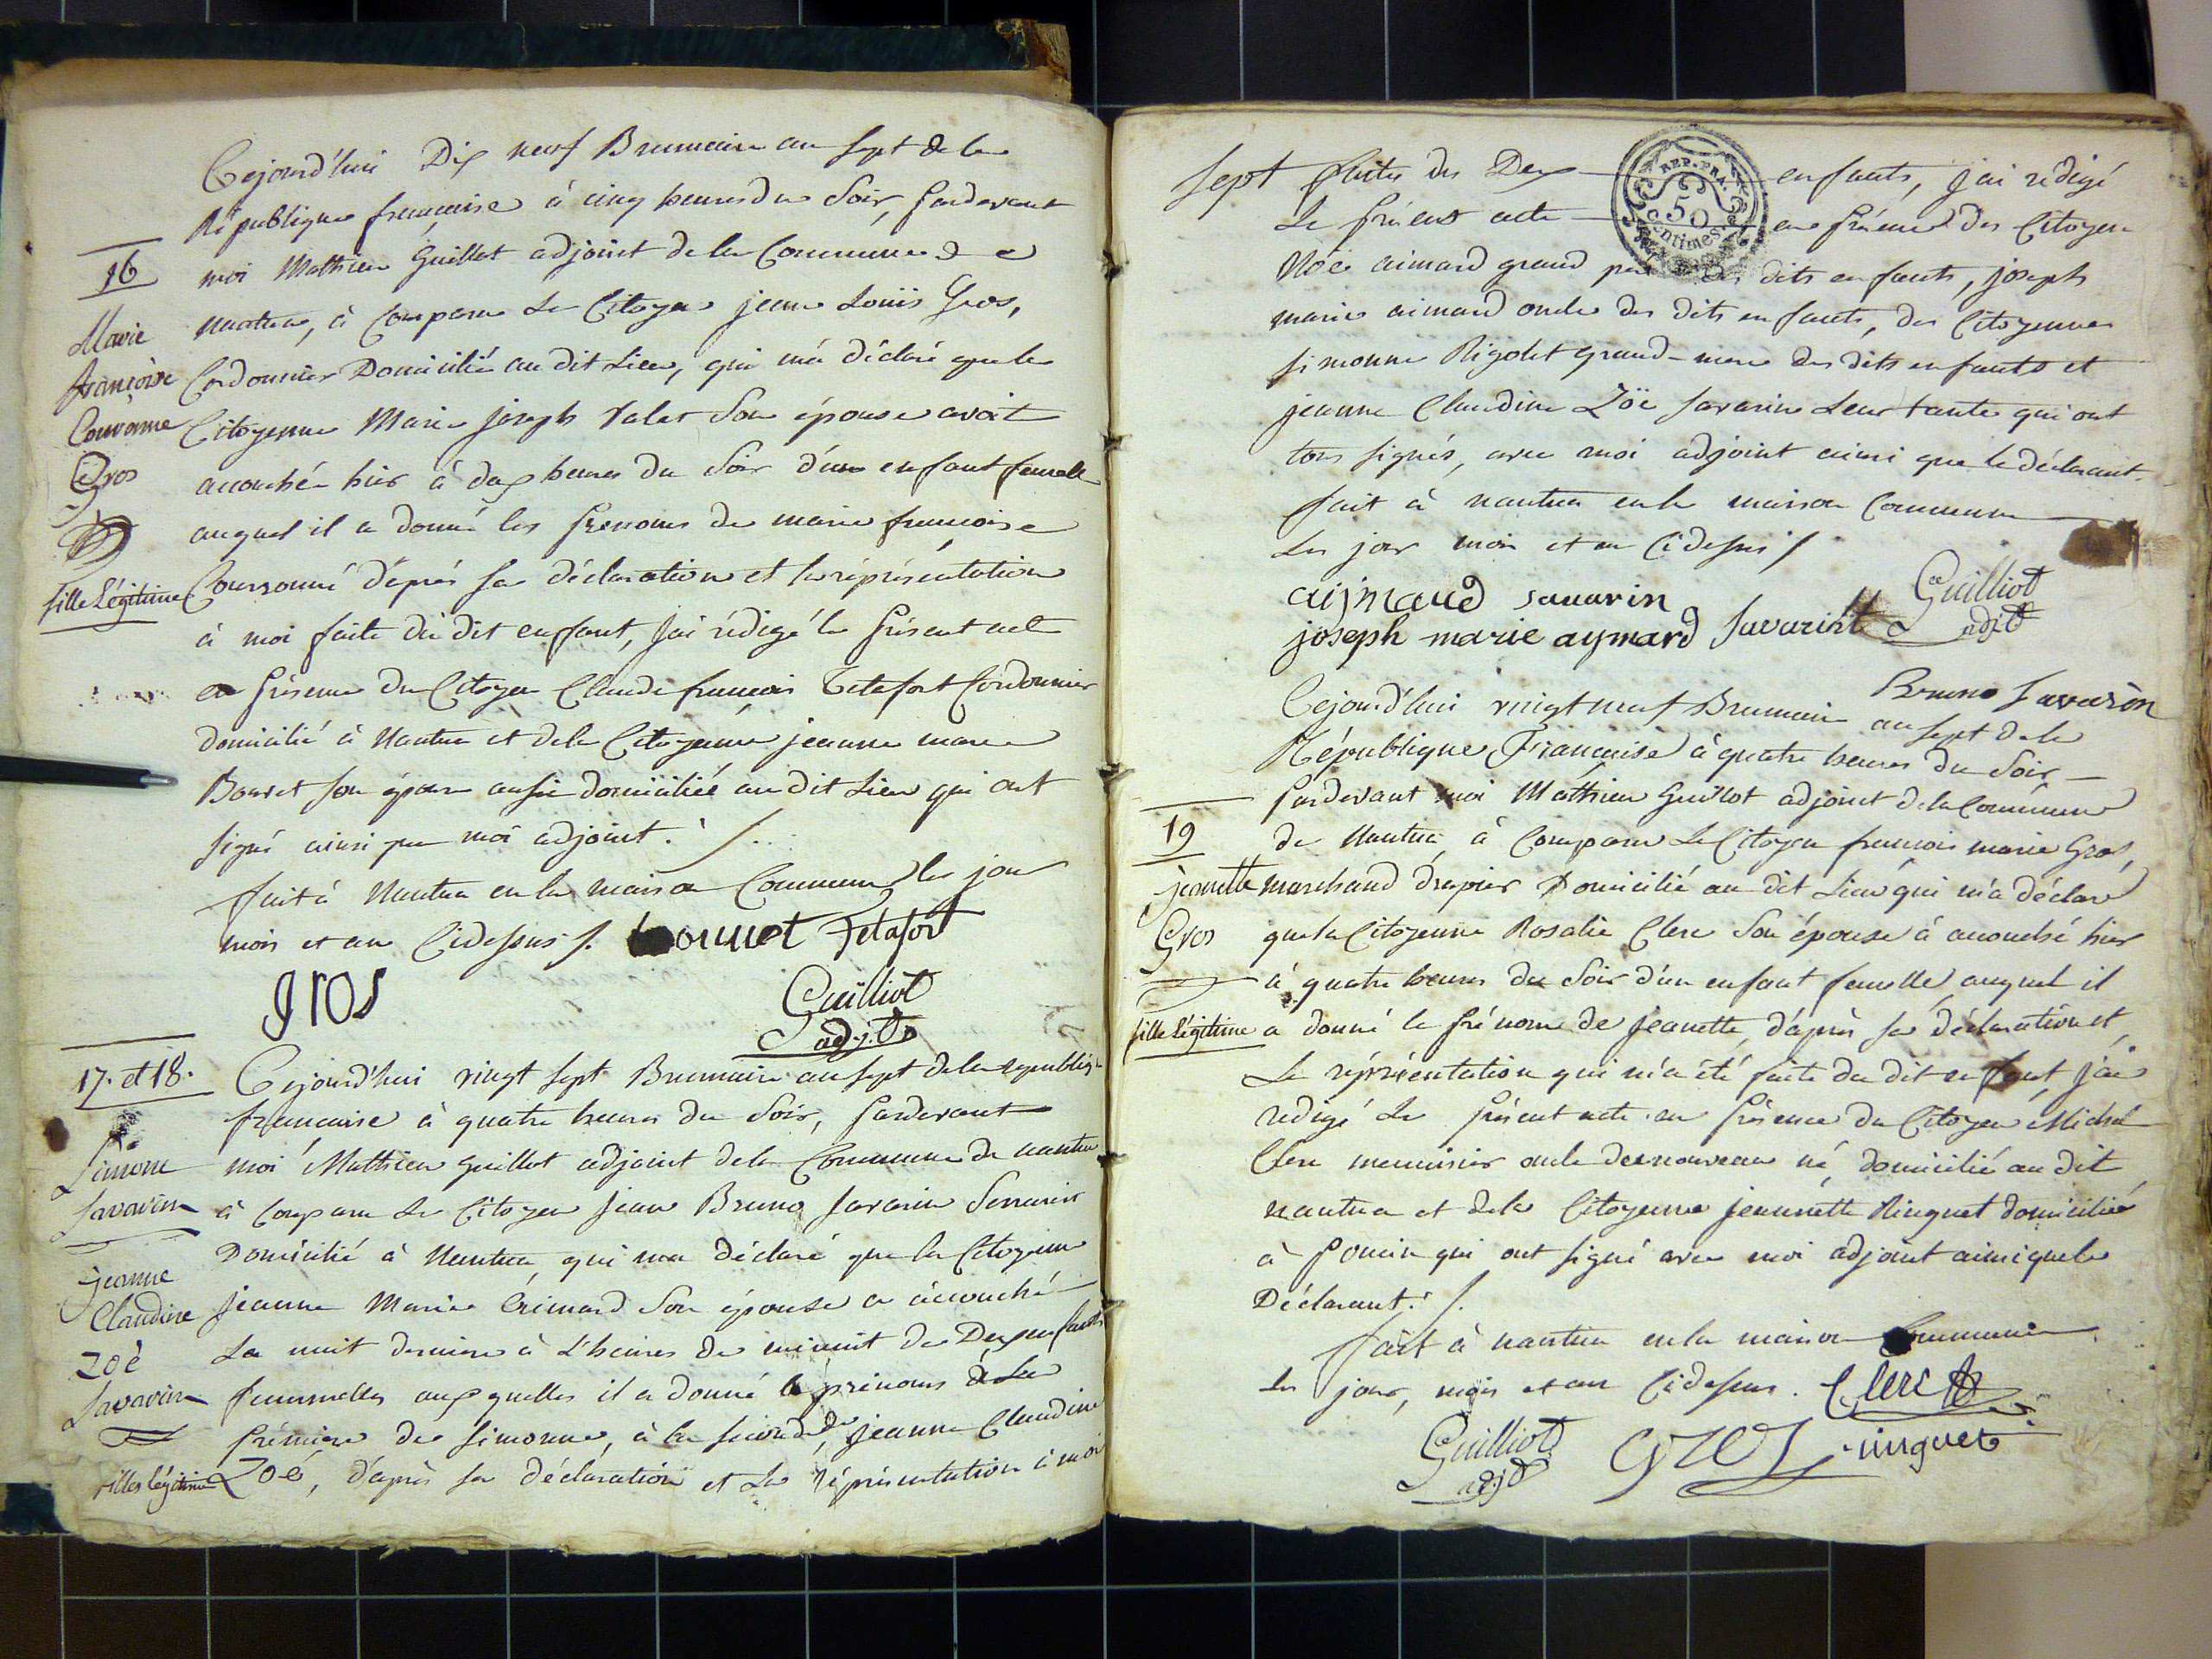 Cejourd'hui Dix neuf Brumaire an sept de la
République française à cinq heures du Soir, pardevant
16
moi Mathieu Guillot adjoint de la Commune de
Marie
nantua, à Comparu Le Citoyen jean Louis Gros,
françoise
Cordonnier Domicilié au dit Lieu, qui m'a déclaré que la
Couronne
Citoyenne Marie joseph Valet Son épouse avoit
Gros
accouché hier à dix heures du Soir d'un enfant femelle
auquel il a donné les prenoms de marie françoise
fille Légitime
Couronné d'après sa déclaration et la réprésentation
à moi faite du dit enfant, j'ai rédigé le présent acte
en présence du Citoyen Claude françois Tetafort Cordonnier
domicilié à Nantua et de la Citoyenne jeanne marie
Bouvet son épouse aussi domiciliée au dit Lieu qui ont
signé ainsi que moi adjoint ./.
fait à Nantua en la maison Commune les jour
mois et an Cidessus ./. bouvet Tetafort
gros
Guilliot
adj.t
17. et 18.
Cejourd'hui vingt sept Brumaire an sept de la republiq.
francaise à quatre heures du Soir, pardevant
Simone
moi Mathieu Guillot adjoint de la Commune de nantua
Savarin
à Comparu Le Citoyen Jean Bruno Savarin Serrurier
Domicilié à Nantua, qui m'a déclaré que la Citoyenne
jeanne
Jeanne Marie Aimard Son épouse a accouché
Claudine
La nuit derniere à L'heure de minuit de Deux enfants
Zoè
femmelles auxquelles il a donné les prénoms à La
Savarin
prémiere de Simonne, à la seconde de jeanne Claudine
filles légitimes
Zoé, d'après sa déclaration et La réprésentation à moi
sept
faites des Deux enfants, j'ai rédigé
REP. FRA.
50
Centimes.
Le présent acte en présence des Citoyens
Noé aimard grand père des dits enfants, joseph
marie aimard oncle des dits enfants, des Citoyennes
simonne Rigolet grand-mere des dits enfants et
jeanne Claudine Zöe Savarin Leur tante qui ont
tous signés, avec moi adjoint ainsi que le déclarant.
fait à nantua en la maison Commune
Les jour mois et an Cidessus /
aijmard savarin
Guilliot
adj.t
joseph marie aymard Savarint
Bruno Savarin
Cejourd'hui vingt neuf Brumaire an sept de la
République Française à quatre heures du Soir
pardevant moi Mathieu Guillot adjoint de la Commune
19
de Nantua, à Comparu Le Citoyen françois marie Gros,
jeanette
marchand drapier Domicilié au dit Lieu qui m'a déclaré
Gros
que la Citoyenne Rosalie Clerc Son épouse à accouché hier
à quatre heures du Soir d'un enfant femelle auquel il
fille Légitime
a donné le prénom de Jeanette, d'après sa déclaration et
La réprésentation qui m'a été faite du dit enfant j'ai
redigé Le présent acte en présence du Citoyen Michel
Clerc menuisier oncle du nouveau né, domicilié au dit
nantua et de la Citoyenne Jeannette Ringuet domiciliée
à Poncin qui ont signé avec moi adjoint ainsi que le
Déclarant ./.
fait à nantua en la maison Commune
Les jour, mois et an Cidessus. Clerc
Guilliot
adj.t
gros ringuet